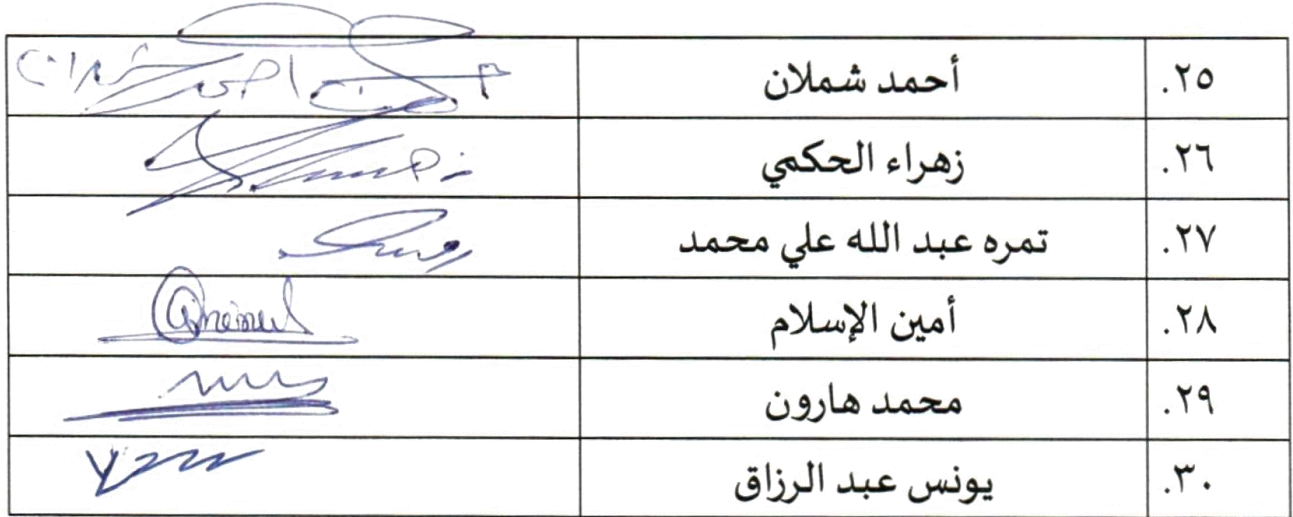 .٢٥ أحمد شملان
.٢٦ زهراء الحكمي
.٢٧ تمره عبد الله علي محمد
.٢٨ أمين الإسلام
.٢٩ محمد هارون
.٣٠ يونس عبد الرزاق